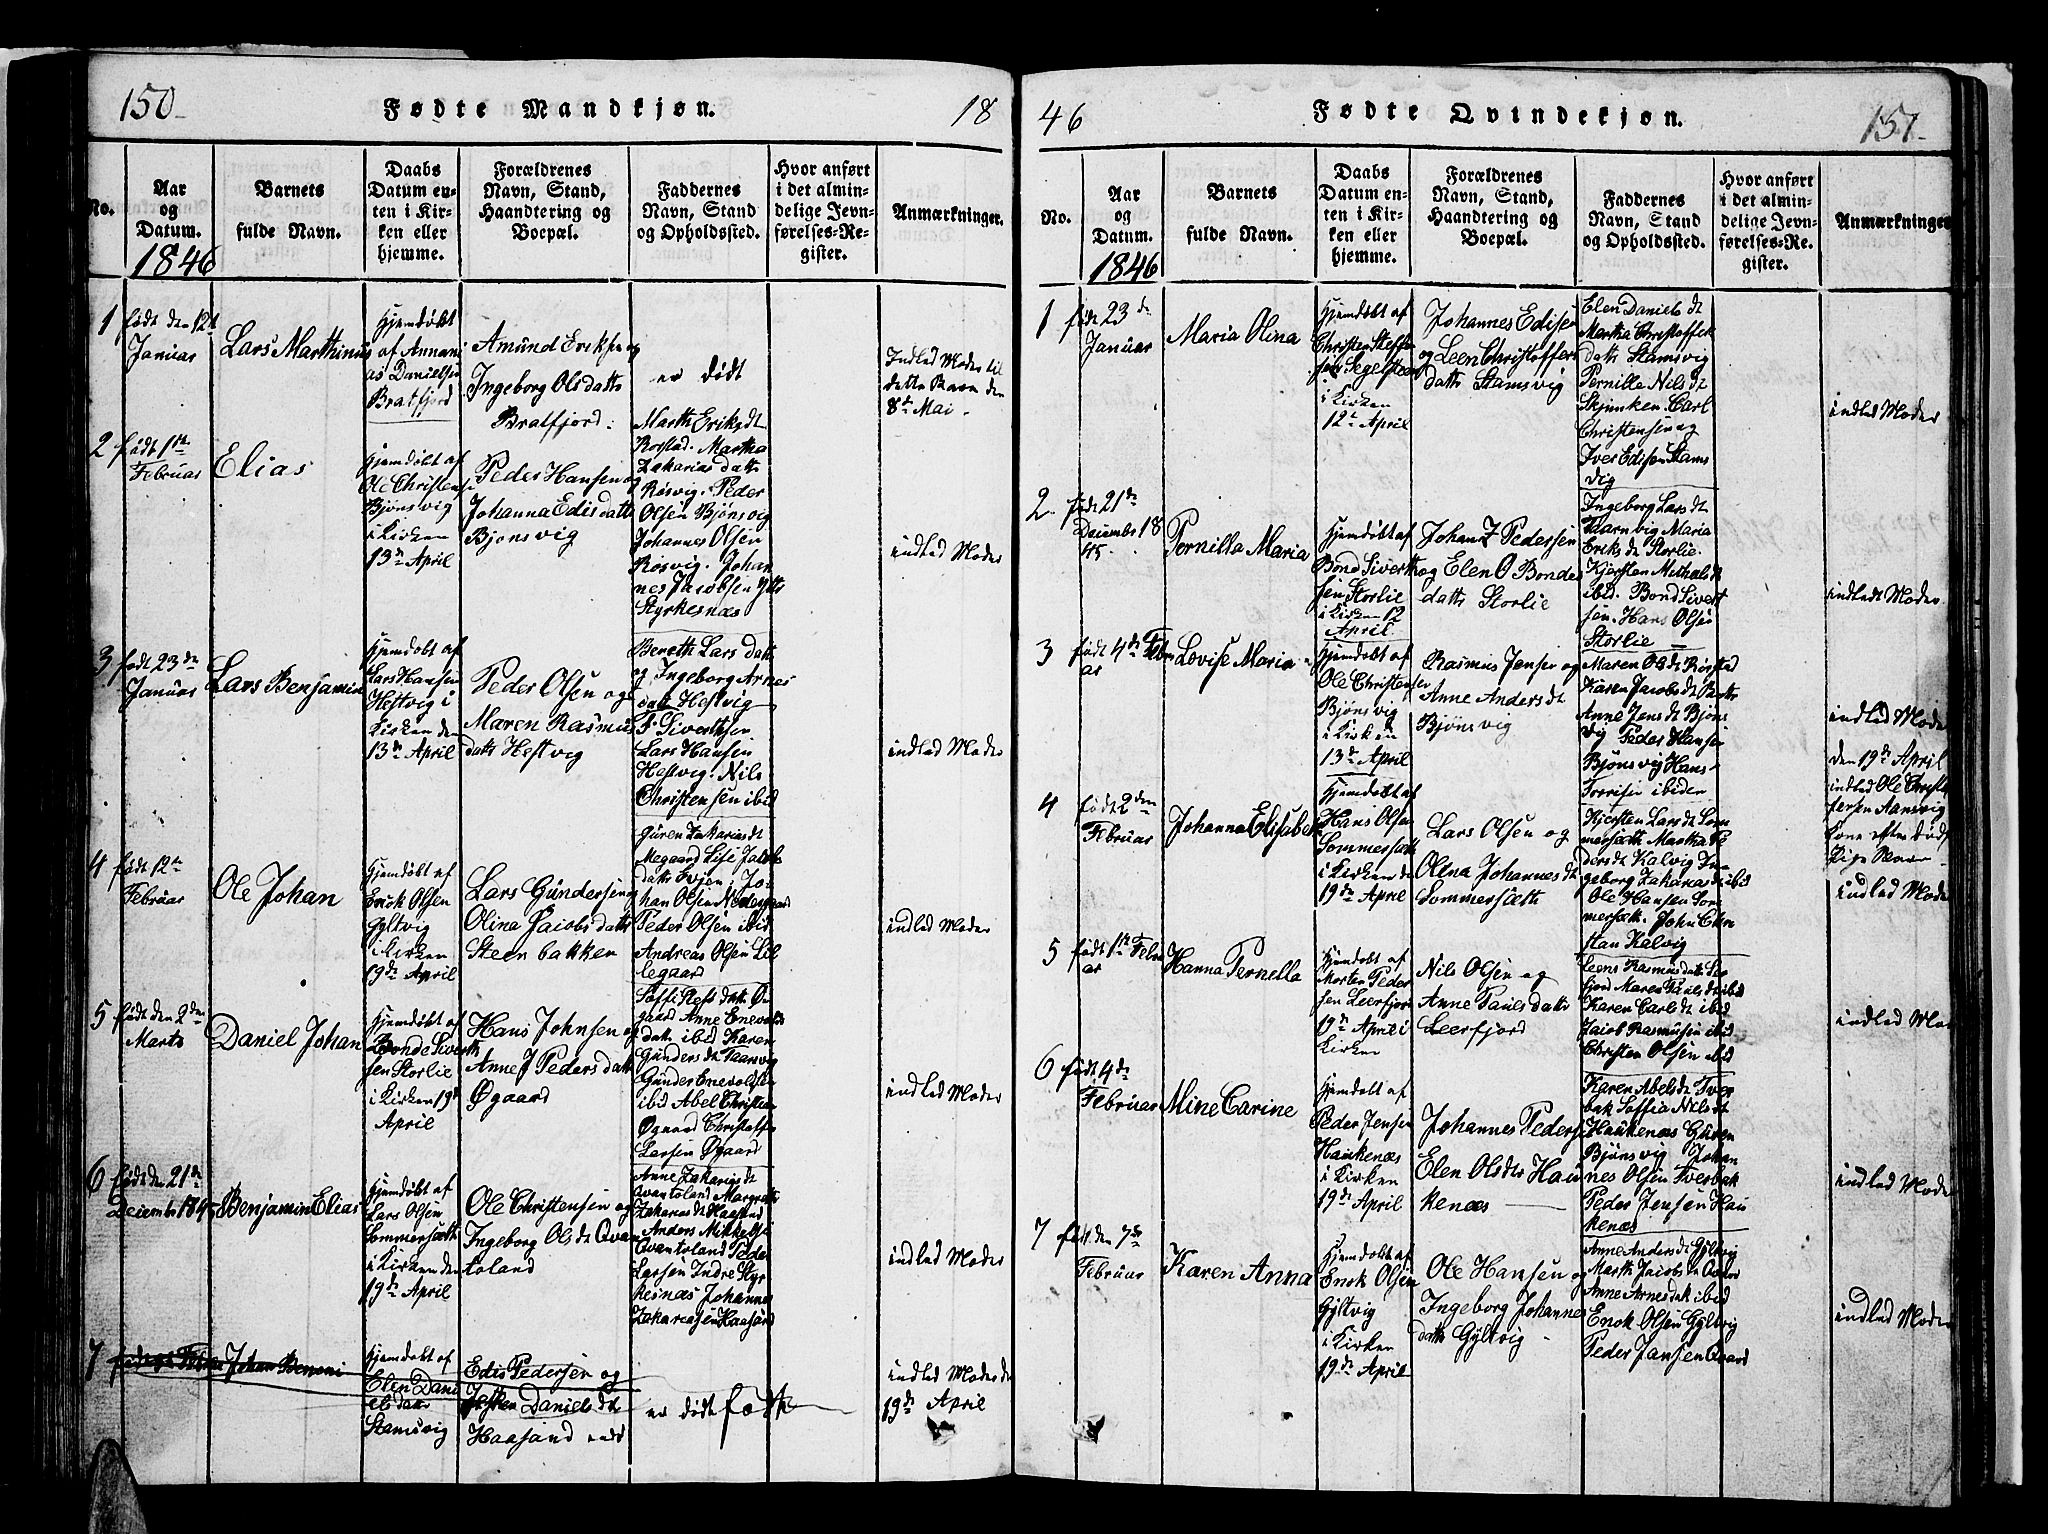 150
Fødte Mandkjøn.
18
No.
Aar
og
Datum.
1846
Barnets
fulde Navn.
Daabs
Datum en-
ten i Kir-
ken eller
hjemme.
Forældrenes
Navn, Stand,
Haandtering og
Boepæl.
Faddernes
Navn, Stand
og Opholdssted.
Hvor anført
i det almin-
delige Jevn-
førelses-Re-
gister.
Anmærkninger.
1
født den 12t
Januar
Lars Marthinus
Hjemdøbt
af Annani
as Danielsen
Bratfjord
Amund Eriksen og
Ingeborg Olsdatte
Bratfjord
er død
Indled Moder til
dette Barn den
8de Mai
2
født 1ste
Februar
Elias
Hjemdøbt af
Ole Christense
Bjønsvig
i Kirken
13de April
Peder Hansen og
Johanna Edisdatte
Bjønsvig
Marth Eriksdt
Rorstad. Martha
Zakarias datte
Røsvig. Peder
Olsen Bjønsvig
Johannes Olsen
Røsvig. Johan
nes Jacobsen Ytte
Styrkesnæs
indled Moder
3
født 23de
Januar
Lars Benjamin
Hjemdøbt af
Lars Hansen
Hestvig i
Kirken den
13de April
Peder Olsen og
Maren Rasmus
datte Hestvig
Bereth Lars datte
og Ingeborg Arnes
datt Hestvig
P. Sivertsen
Lars Hansen
Hestvig. Nils
Christensen ibid
indled Moder
4
født 12te
Februar
Ole Johan
Hjemdøbt af
Enok Olsen
Gyltvig
i Kirken
19de April
Lars Gundersen og
Olina Jacobsdatte
Steenbakken
Guren Zakariasdt
Megaard Lise Jacobs
datte Fojen, Jo-
han Olsen Nedregaard
Peder Olsen ibid
Andreas Olsen Lil
legaard
indled Moder
5
født den 2den
Marts
Daniel Johan
Hjemdøbt af
Bonde Sivert
sen Storlie
i Kirken 19de
April
Hans Johnsen og
Anne J Pedersdatt
Øgaard
gaard Anne Enevolds
datt. ibid Karen
Gundersdt Taarnvig
Gunder Enevoldsen
ibid Abel Christian
Øgaard Christoffer
Larsen Øgaard
indled Moder
6
født den 21de
Decembr 1845
Benjamin Elias
Hjemdøbt af
Lars Olsen
Sommersæth
i Kirken den
19de April
Ole Christensen og
Ingeborg Olsdt Qvan
toland
Anne Zakariasdt
Qvantoland Margrete
Zakariasdt Haasand
Anders Mikkelsen
Qvantoland Peder
Larsen Indre Styr
kesnæs Johannes
Zakariasen Haasand
indled Moder
7
Johan Benoni
Hjemdøbt af
Elen Dani
elsdatte
Stamsvig
Edis Pedersen og
Danielsdt
Haasand
er død
indled Moder de
19de April
46
Fødte Qvindekjøn.
151.
No.
Aar
og
Datum.
1846
Barnets
fulde Navn.
Daabs
Datum en-
ten i Kir-
ken eller
hjemme.
Forældrenes
Navn, Stand,
Haandtering og
Boepæl.
Faddernes
Navn, Stand
og Opholdssted.
Hvor anført
i det almin-
delige Jevn-
førelses-Re-
gister.
Anmærkninger
1
født 23de
Januar
Maria Olina
Hjemdøbt af
Christen Steffen
sen Segelsteen
i Kirken
12te April
Johannes Edisen
og Leen Christoffers
datte Stamsvig
Elen Danielsdt
Martha Christoffers
datte Stamsvig
Pernille Nilsdt
Skjunken. Carl
Christensen og
Iver Edisen Stams
vig
indled Moder
2
født 21de
Decembr 18
45
Pernilla Maria
Hjemdøbt af
Bond Sivert
sen Storlie
i Kirken 12
April
Johan J Pedersen
og Elen O Bondes
datte Storlie
Ingeborg Larsdt
Taarnvig Maria
Eriksdt Storlie
Kjersten Michalsdt
ibid. Bond Sivert
sen. Hans Olsen
Storlie
indledt Moder
3
født 4de Febru
ar
Lovise Maria
Hjemdøbt af
Ole Christensen
Bjønsvig
i Kirken
13de April
Rasmus Jensen og
Anne Andersdt
Bjønsvig
Maren Olsdt Rørstad
Karen Jacobsdt
Anne Jensdt Bjøns
vig Peder Hansen
Bjønsvig Hans
ibiden
indled Moder
den 19de April
indled Ole Christe
4
født 2den
Februar
Johanna Elisabeth
Hjemdøbt af
Hans Olsen
Sommersæth
i Kirken de
19de April
Lars Olsen og
Olina Johannesdt
Sommersæth
Kjersten Larsdt Som
mersæth Martha Pe
dersdt Kalvig In
geborg Zakariadt ibid
Ole Hansen Som
mersæt. John Chri
stian Kalvig
indled Moder
5
født 1ste Febru
ar
Hanna Pernella
Hjemdøbt af
Morten Peder
sen Leerfjord
19de April i
Kirken
Nils Olsen og
Anne Paulsdatte
Leerfjord
Leena Rasmusdatt Leer
fjord Maren Paulsdt ibid
Karen Carlsdt ibid
Jacob Rasmusen ibid
Christen Olsen ibid
indled Mod
6
født 4de
Februar
Mine Carine
Hjemdøbt af
Peder Jensen
Haukenæs
i Kirken
19de April
Johannes Peders
Elen Olsdtr Hau
kenæs
Karen Abelsdt Tver
bak Soffia Nilsdt
Haukenæs Guren
Bjønsvig Johan
nes Olsen Tverbak
Peder Jensen Hau
kenæs
indled Moder
7
født den 7de
Februar
Karen Anna
Hjemdøbt af
Enok Olsen
Gyltvig
i Kirken
19de April
Ole Hansen og
Ingeborg Johannes
datte Gyltvig
Anne Andersdt Gyltvig
Marth Jacobsdt
Anne Arnesdatt ibid
Enok Olsen Gyltvig
Peder Jansen
indled Moder